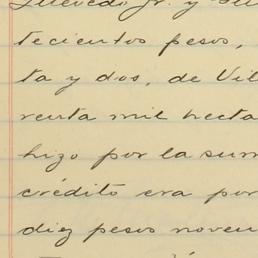 Quevedo Jr. y Su
tecientos pesos,
ta y dos, de Vil
renta mil hecta
hizo por la sum
crédito era por
diez pesos noven